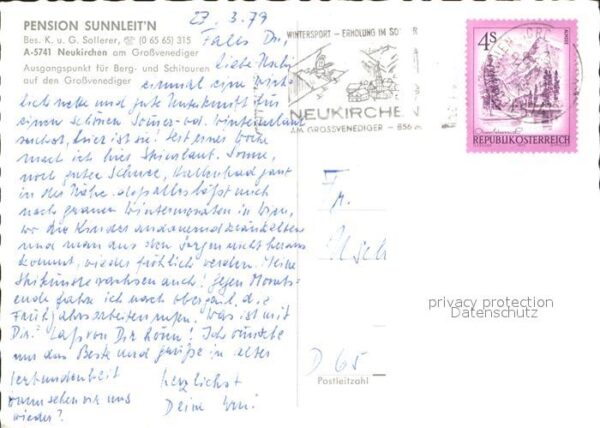 PENSION SUNNLEIT'N
Bes. K. u. G. Sollerer, ☏ (0 65 65) 315
A-5741 Neukirchen am Großvenediger
Ausgangspunkt für Berg- und Schitouren
auf den Großvenediger
23. 3. 79
Falls Du,
liebe Uschi
einmal eine wirk-
lich nette und gute Unterkunft für
einen schönen Winterurlaub
suchst, hier ist sie! Seit einer Woche
mach ich hier Skiurlaub. Sonne,
noch guter Schnee, Hallenbad ganz
in der Nähe. das alles läßt mich
nach grauen Wintermonaten in Wien,
wo die Kinder andauernd kränkelten
und man aus den Sorgen nicht heraus
kommt, wieder fröhlich werden. Meine
Skikünste wachsen auch! Gegen Monats-
ende fahre ich nach die
Frühjahrsarbeiten rufen. Was ist mit
Dir? Laß von Dir hören! Ich wünsche
nur das Beste und grüße in alter
Verbundenheit herzlichst
wann sehen wir uns Deine
wieder?
WINTERSPORT – ERHOLUNG IM SO
NEUKIRCHEN
AM GROSSVENEDIGER
4S
REPUBLIK ÖSTERREICH
Fr.
Usch
D 65
Postleitzahl
privacy protection
Datenschutz